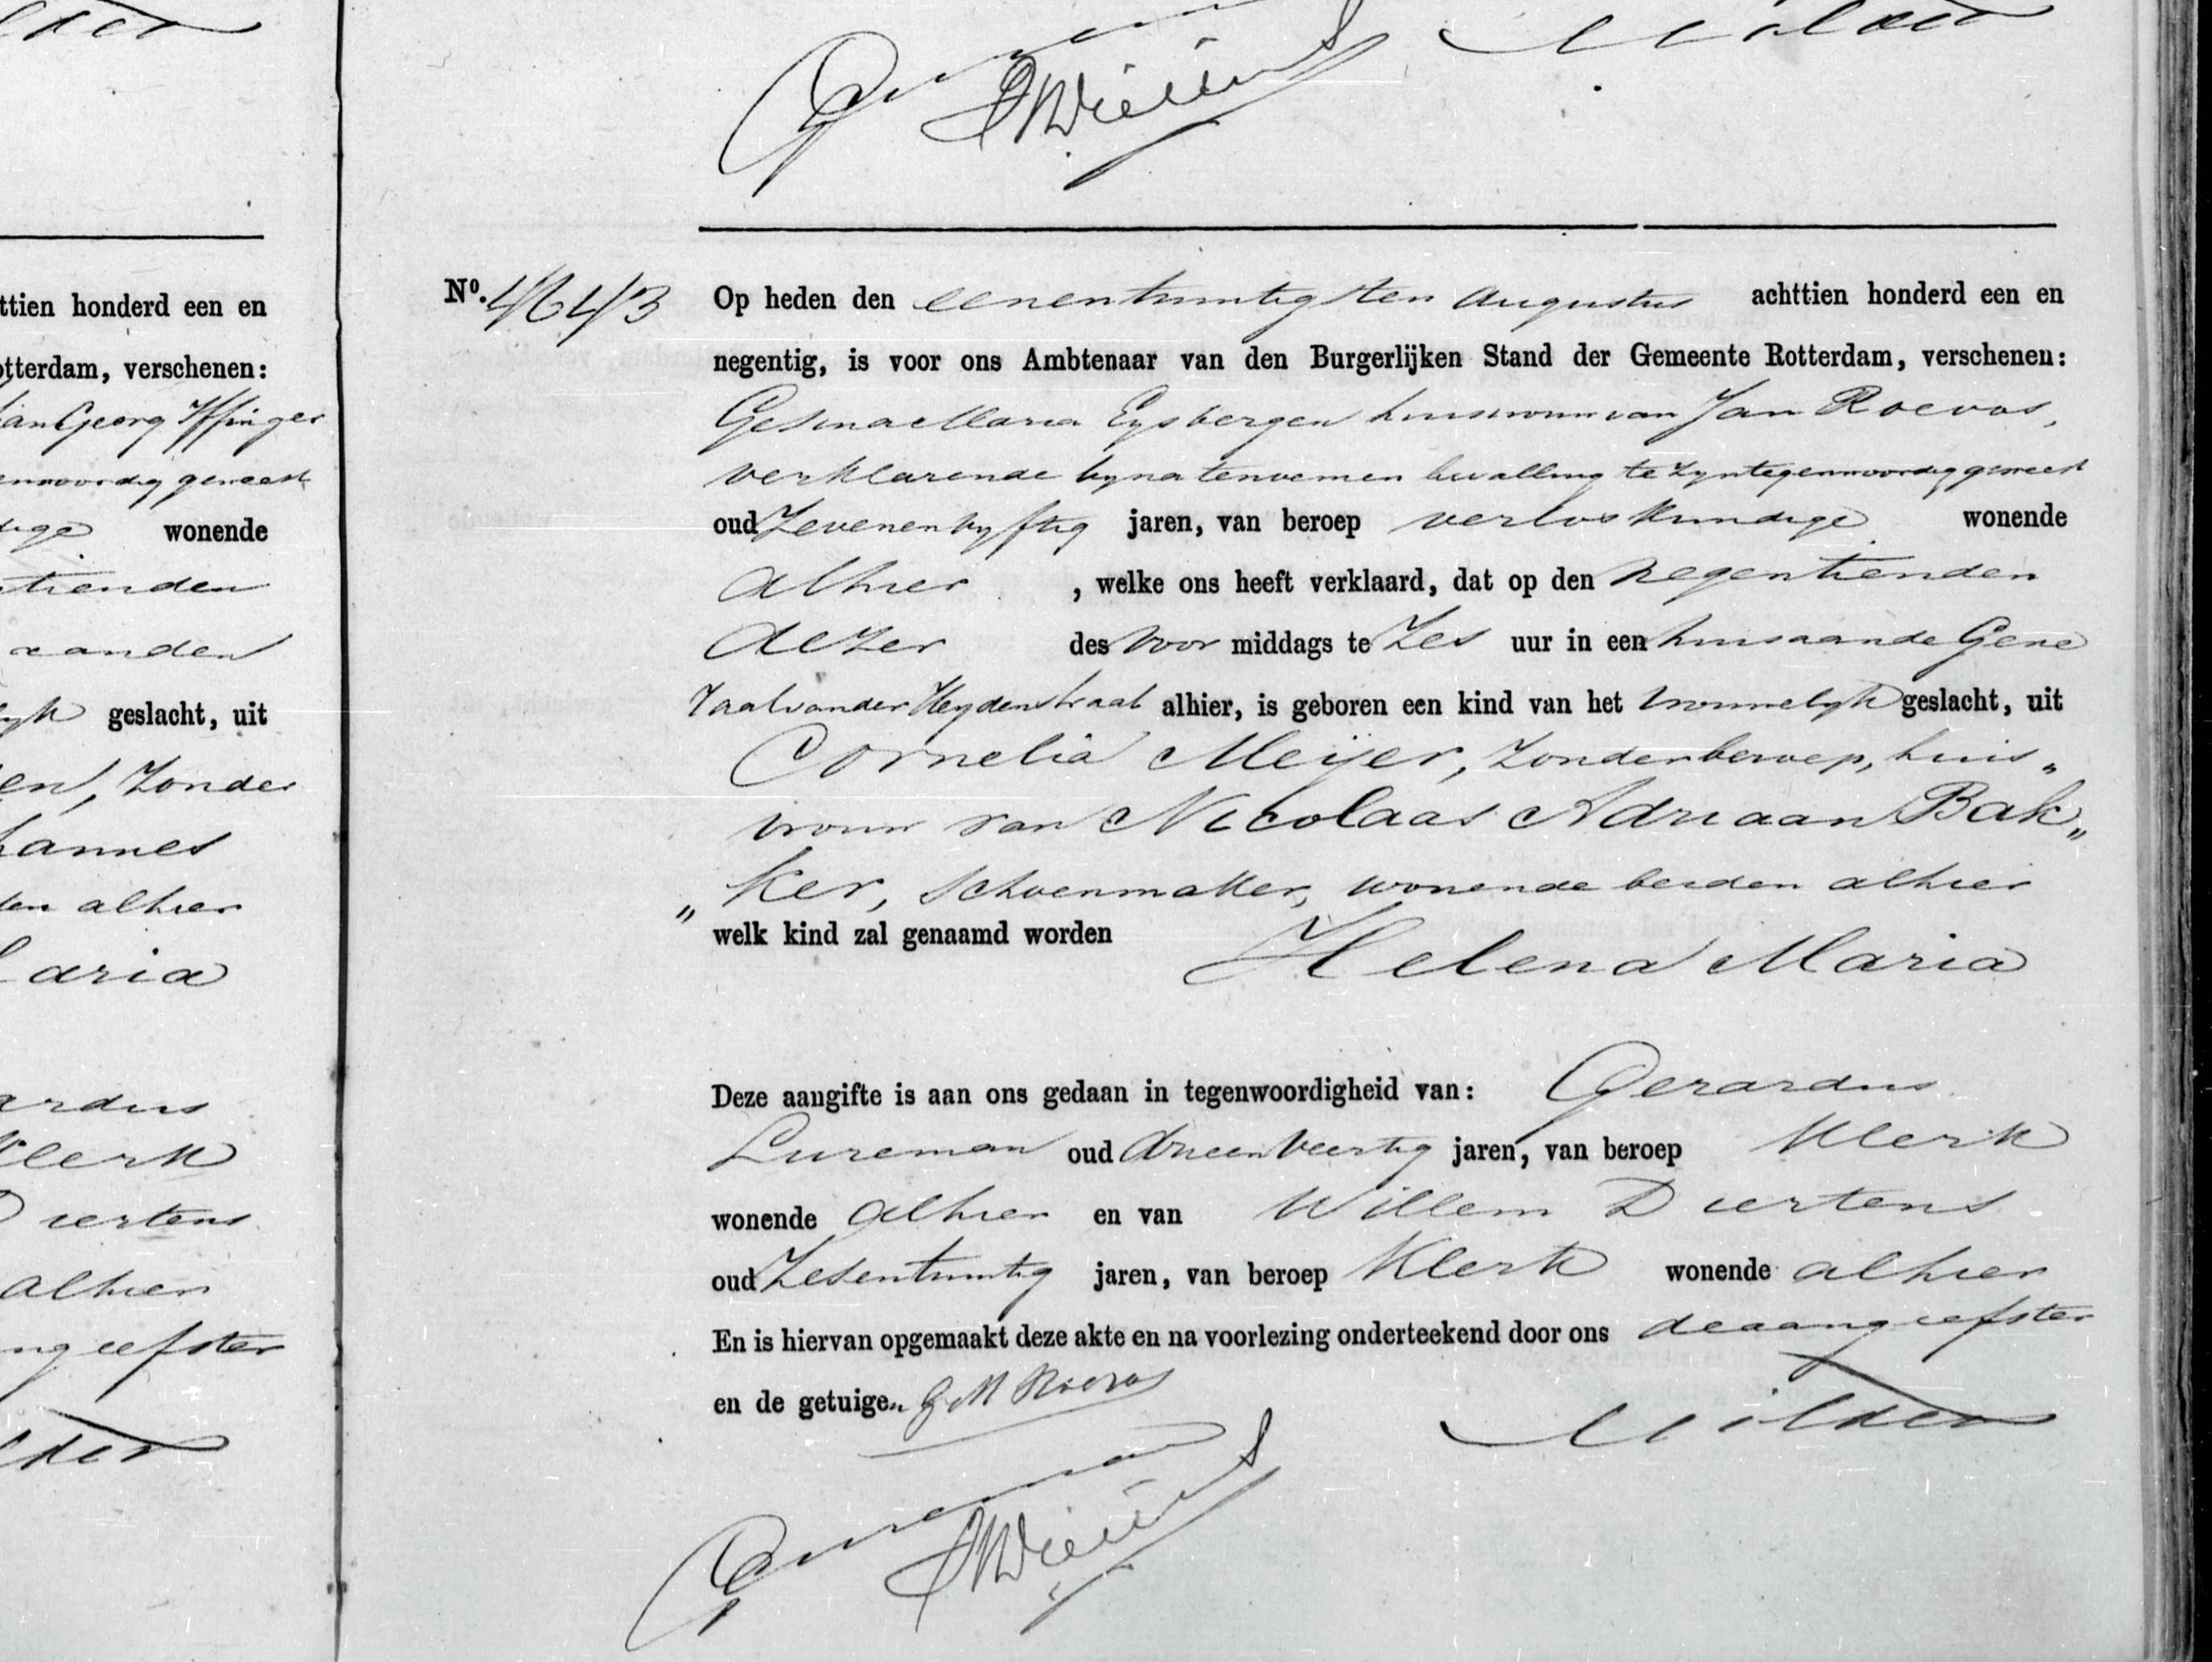 ttien honderd een en
otterdam, verschenen:
ian Georg Iffinger
enwoordig geweest
dige wonende
tienden
randen
lyk geslacht, uit
en, zonder
hannes
den alhier
aria
ardus
Klerk
Diertens
alhier
ngeefster
lder
Milder
No. 4643 Op heden den eenentwintigsten Augustus achttien honderd een en
negentig, is voor ons Ambtenaar van den Burgerlijken Stand der Gemeente Rotterdam, verschenen:
Gesina Maria Eysbergen huisvrouw van Jan Roevos,
verklarende by na te noemen bevalling te zyn tegenwoordig geweest
oud zevenenvyftig jaren, van beroep verloskundige wonende
alhier , welke ons heeft verklaard, dat op den negentienden
dezer des voor middags te zes uur in een huis aan de Gene
raal van der Heydenstraat alhier, is geboren een kind van het vrouwelyk geslacht, uit
Cornelia Meijer, zonder beroep, huis„
vrouw van Nicolaas Adriaan Bak„
„ker, schoenmaker, wonende beiden alhier
welk kind zal genaamd worden Helena Maria
Deze aangifte is aan ons gedaan in tegenwoordigheid van: Gerardus
Lureman oud drieenveertig jaren, van beroep Klerk
wonende alhier en van Willem Diertens
oud zesentwintig jaren, van beroep Klerk wonende alhier
En is hiervan opgemaakt deze akte en na voorlezing onderteekend door ons de aangeefster
en de getuigen. G M Roevos
Milder